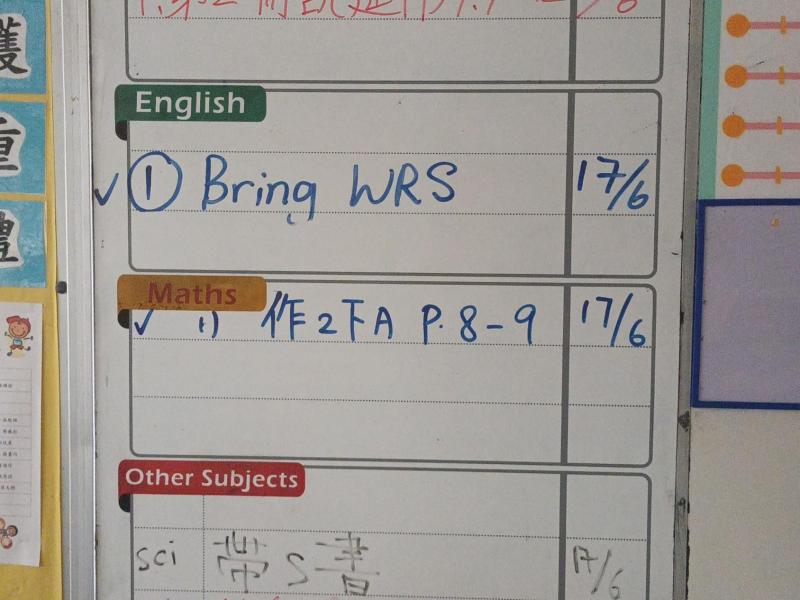 English
✓ ① Bring WRS 17/6
Maths
✓ 1) 作2下A P. 8-9 17/6
Other Subjects
sci 帶 S 書 17/6
護
重
禮